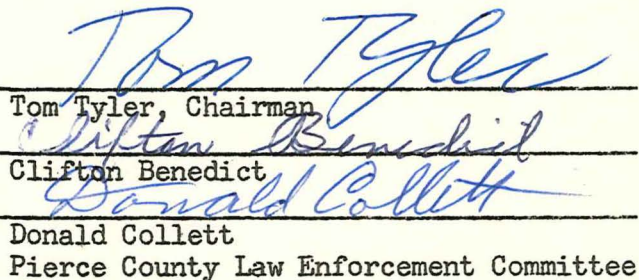 Tom Tyler
Tom Tyler, Chairman
Clifton Benedict
Clifton Benedict
Donald Collett
Donald Collett
Pierce County Law Enforcement Committee